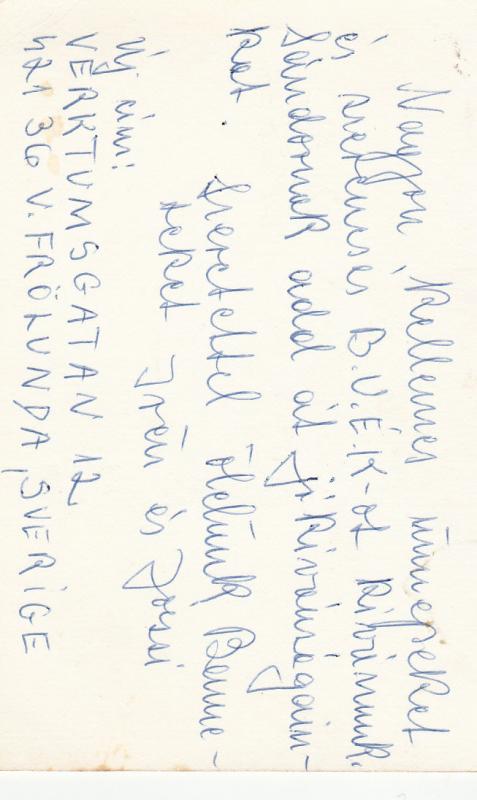 Nagyon kellemes ünnepeket
és szerencsés B.U.É.K-ot kívánunk.
Sándornak add át jókívánságain-
kat.
Szeretettel ölelünk Benne-
teket Irén és Józsi
Új cím:
VERKTUMSGATAN 12
421 36 V. FRÖLUNDA, SVERIGE